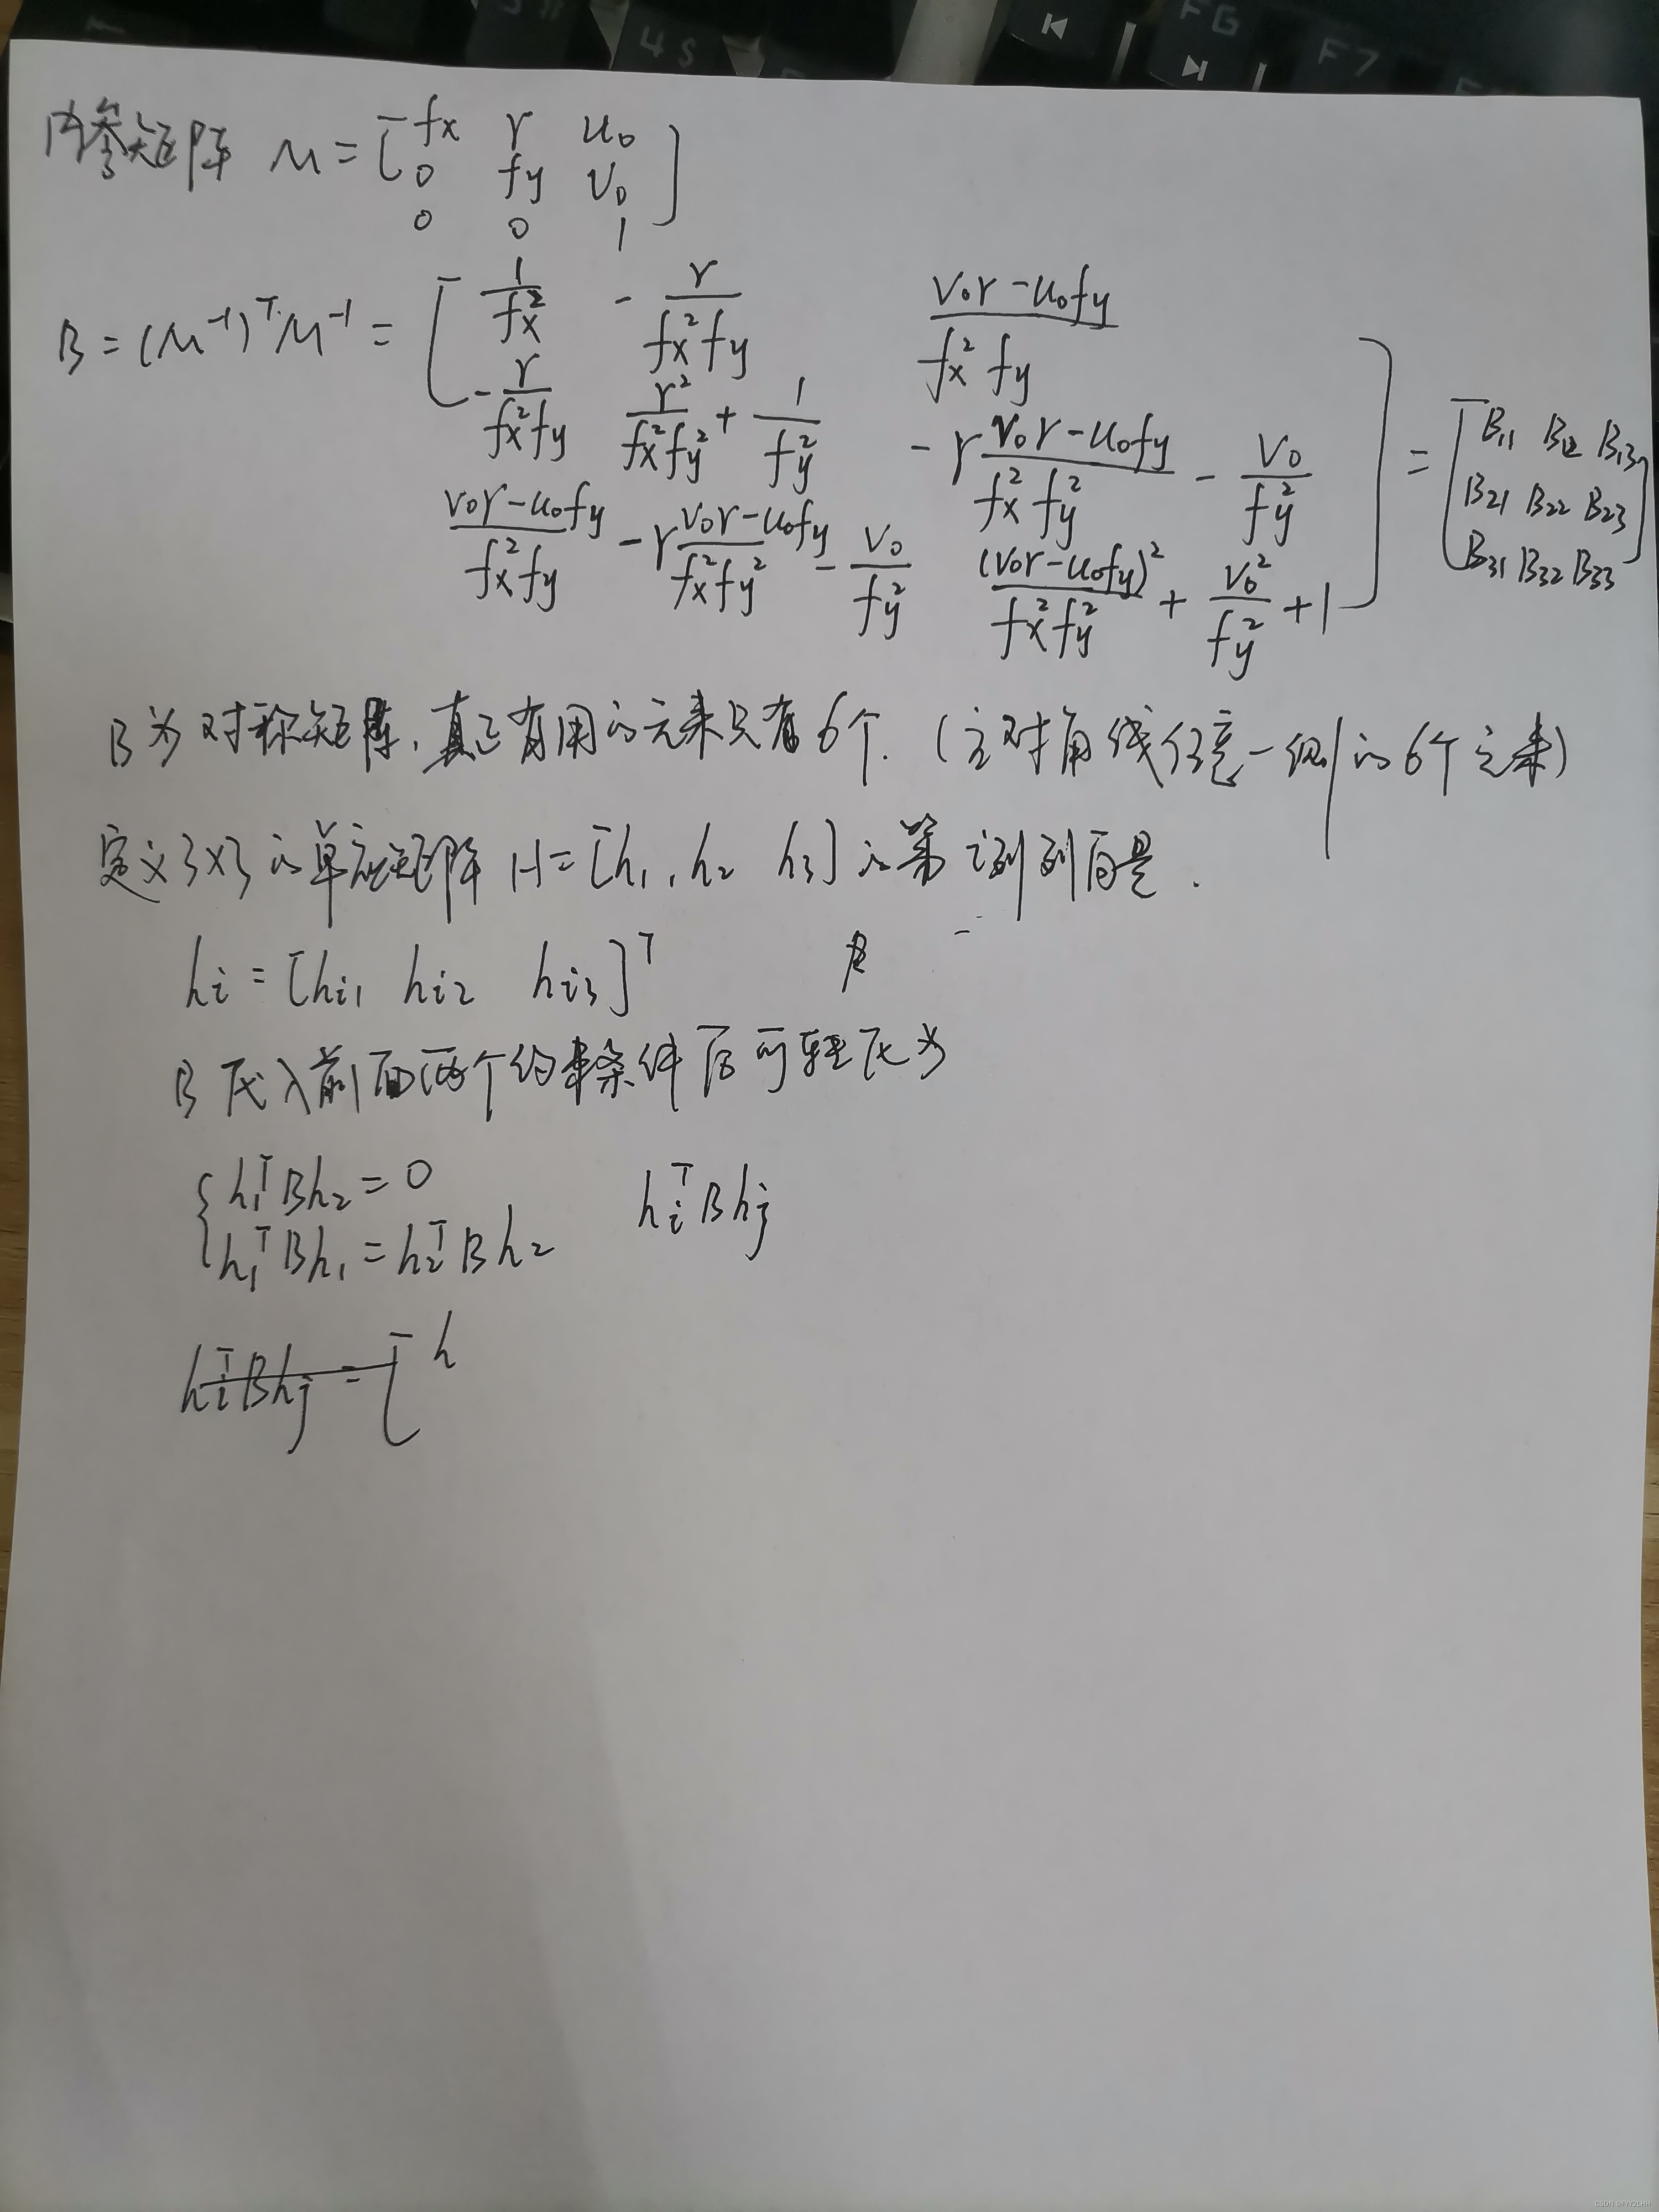 4 $
F6
F7
内参矩阵 M = [ fx γ u₀
0 fy v₀
0 0 1 ]
B = (M⁻¹)ᵀM⁻¹ = [ 1/fx² -γ/(fx²fy) (v₀γ-u₀fy)/(fx²fy)
-γ/(fx²fy) γ²/(fx²fy²) + 1/fy² -γ(v₀γ-u₀fy)/(fx²fy²) - v₀/fy²
(v₀γ-u₀fy)/(fx²fy) -γ(v₀γ-u₀fy)/(fx²fy²) - v₀/fy² (v₀γ-u₀fy)²/(fx²fy²) + v₀²/fy² + 1 ] = [ B₁₁ B₁₂ B₁₃
B₂₁ B₂₂ B₂₃
B₃₁ B₃₂ B₃₃ ]
B为对称矩阵,真正有用的元素只有6个.(主对角线任意一侧的6个元素)
定义3×3的单应矩阵 H=[h₁,h₂ h₃]的第i列列向量.
hᵢ = [hᵢ₁ hᵢ₂ hᵢ₃]ᵀ
B代入前面两个约束条件后可转化为
{ h₁ᵀBh₂ = 0
h₁ᵀBh₁ = h₂ᵀBh₂
hᵢᵀBhⱼ
hᵢᵀBhⱼ = [ h